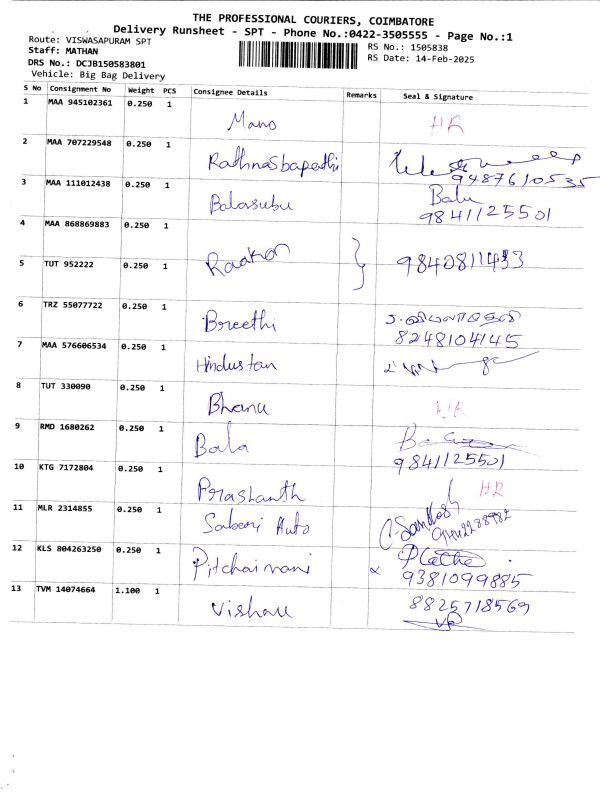 THE PROFESSIONAL COURIERS, COIMBATORE
Delivery Runsheet - SPT - Phone No.:0422-3505555 - Page No.:1
Route: VISWASAPURAM SPT
RS No.: 1505838
Staff: MATHAN
RS Date: 14-Feb-2025
DRS No.: DCJB150583801
Vehicle: Big Bag Delivery
S No Consignment No Weight PCS Consignee Details Remarks Seal & Signature
1 MAA 945102361 0.250 1
Mano
2 MAA 707229548 0.250 1
Rathnasbapathi
9487610535
3 MAA 111012438 0.250 1
Balasubu Balu
9841125501
4 MAA 868869883 0.250 1
5 TUT 952222 0.250 1
6 TRZ 55077722 0.250 1
Breethi
8248104145
7 MAA 576606534 0.250 1
Hindustan
8 TUT 330090 0.250 1
Bhanu
9 RMD 1680262 0.250 1
Bala
9841125501
10 KTG 7172804 0.250 1
Prashanth
11 MLR 2314855 0.250 1
Sabari Auto C. Santhosh
12 KLS 804263250 0.250 1
Pitchaimani
9381099885
13 TVM 14074664 1.100 1
8825718569